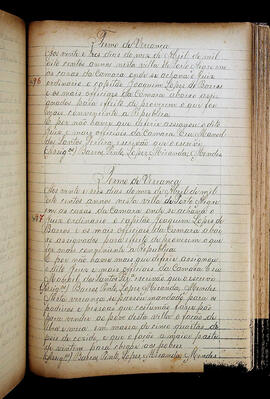 Termo de Vereança
Aos vinte e tres dias do mez de Abril de mil
oito centos annos nesta villa de Porto Alegre em
as casas da Camara onde se achava o Juiz
ordinario o capitão Joaquim Lopes de Barros
e os mais officiaes da Camara abaixo assig-
nados para effeito de proverem o que for
mais conveniente a Republica.
E por não haver que deferir assignou o dito
Juiz e mais officiaes da Camara. Eu Manoel
dos Santos escrivão que o escrevi.
Barros, Pinto, Lopes, Miranda, Mendes
Termo de Vereança
Aos vinte e seis dias do mez de Abril de mil
oito centos annos nesta villa de Porto Alegre
em as casas da Camara onde se achava o
Juiz ordinario o capitão Joaquim Lopes de
Barros e os mais officiaes da Camara abai-
xo assignados para effeito de proverem o que
for mais conveniente a Republica.
E por não haver mais que deferir assignou
o dito Juiz e mais officiaes da Camara. Eu
Manoel dos Santos escrivão que o escrevi
Barros, Pinto, Lopes, Miranda, Mendes
Nesta vereança se passou mandado para os
padeiros e pessoas que costumão fazer pão
para vender ao povo desta villa o fação de
libra e meia em massa de cinco quartas de
pão de cosido, e que o fação a maior parte
de vintem para chegar aos pobres
Barros, Pinto, Lopes, Miranda, Mendes